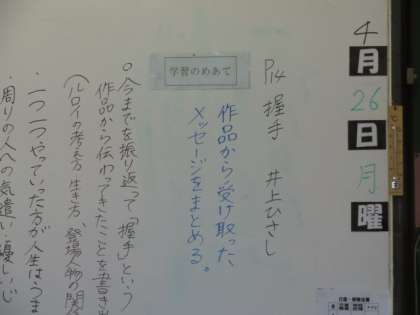 4月26日月曜
P14 握手 井上ひさし
学習のめあて
作品から受け取った、
メッセージをまとめる。
○今までを振り返って「握手」という
作品から伝わってきたことを書き出
(ルロイの考え方、生き方、登場人物の関係
・一つ一つやっていった方が人生はうま
・周りの人への気遣い・優しい